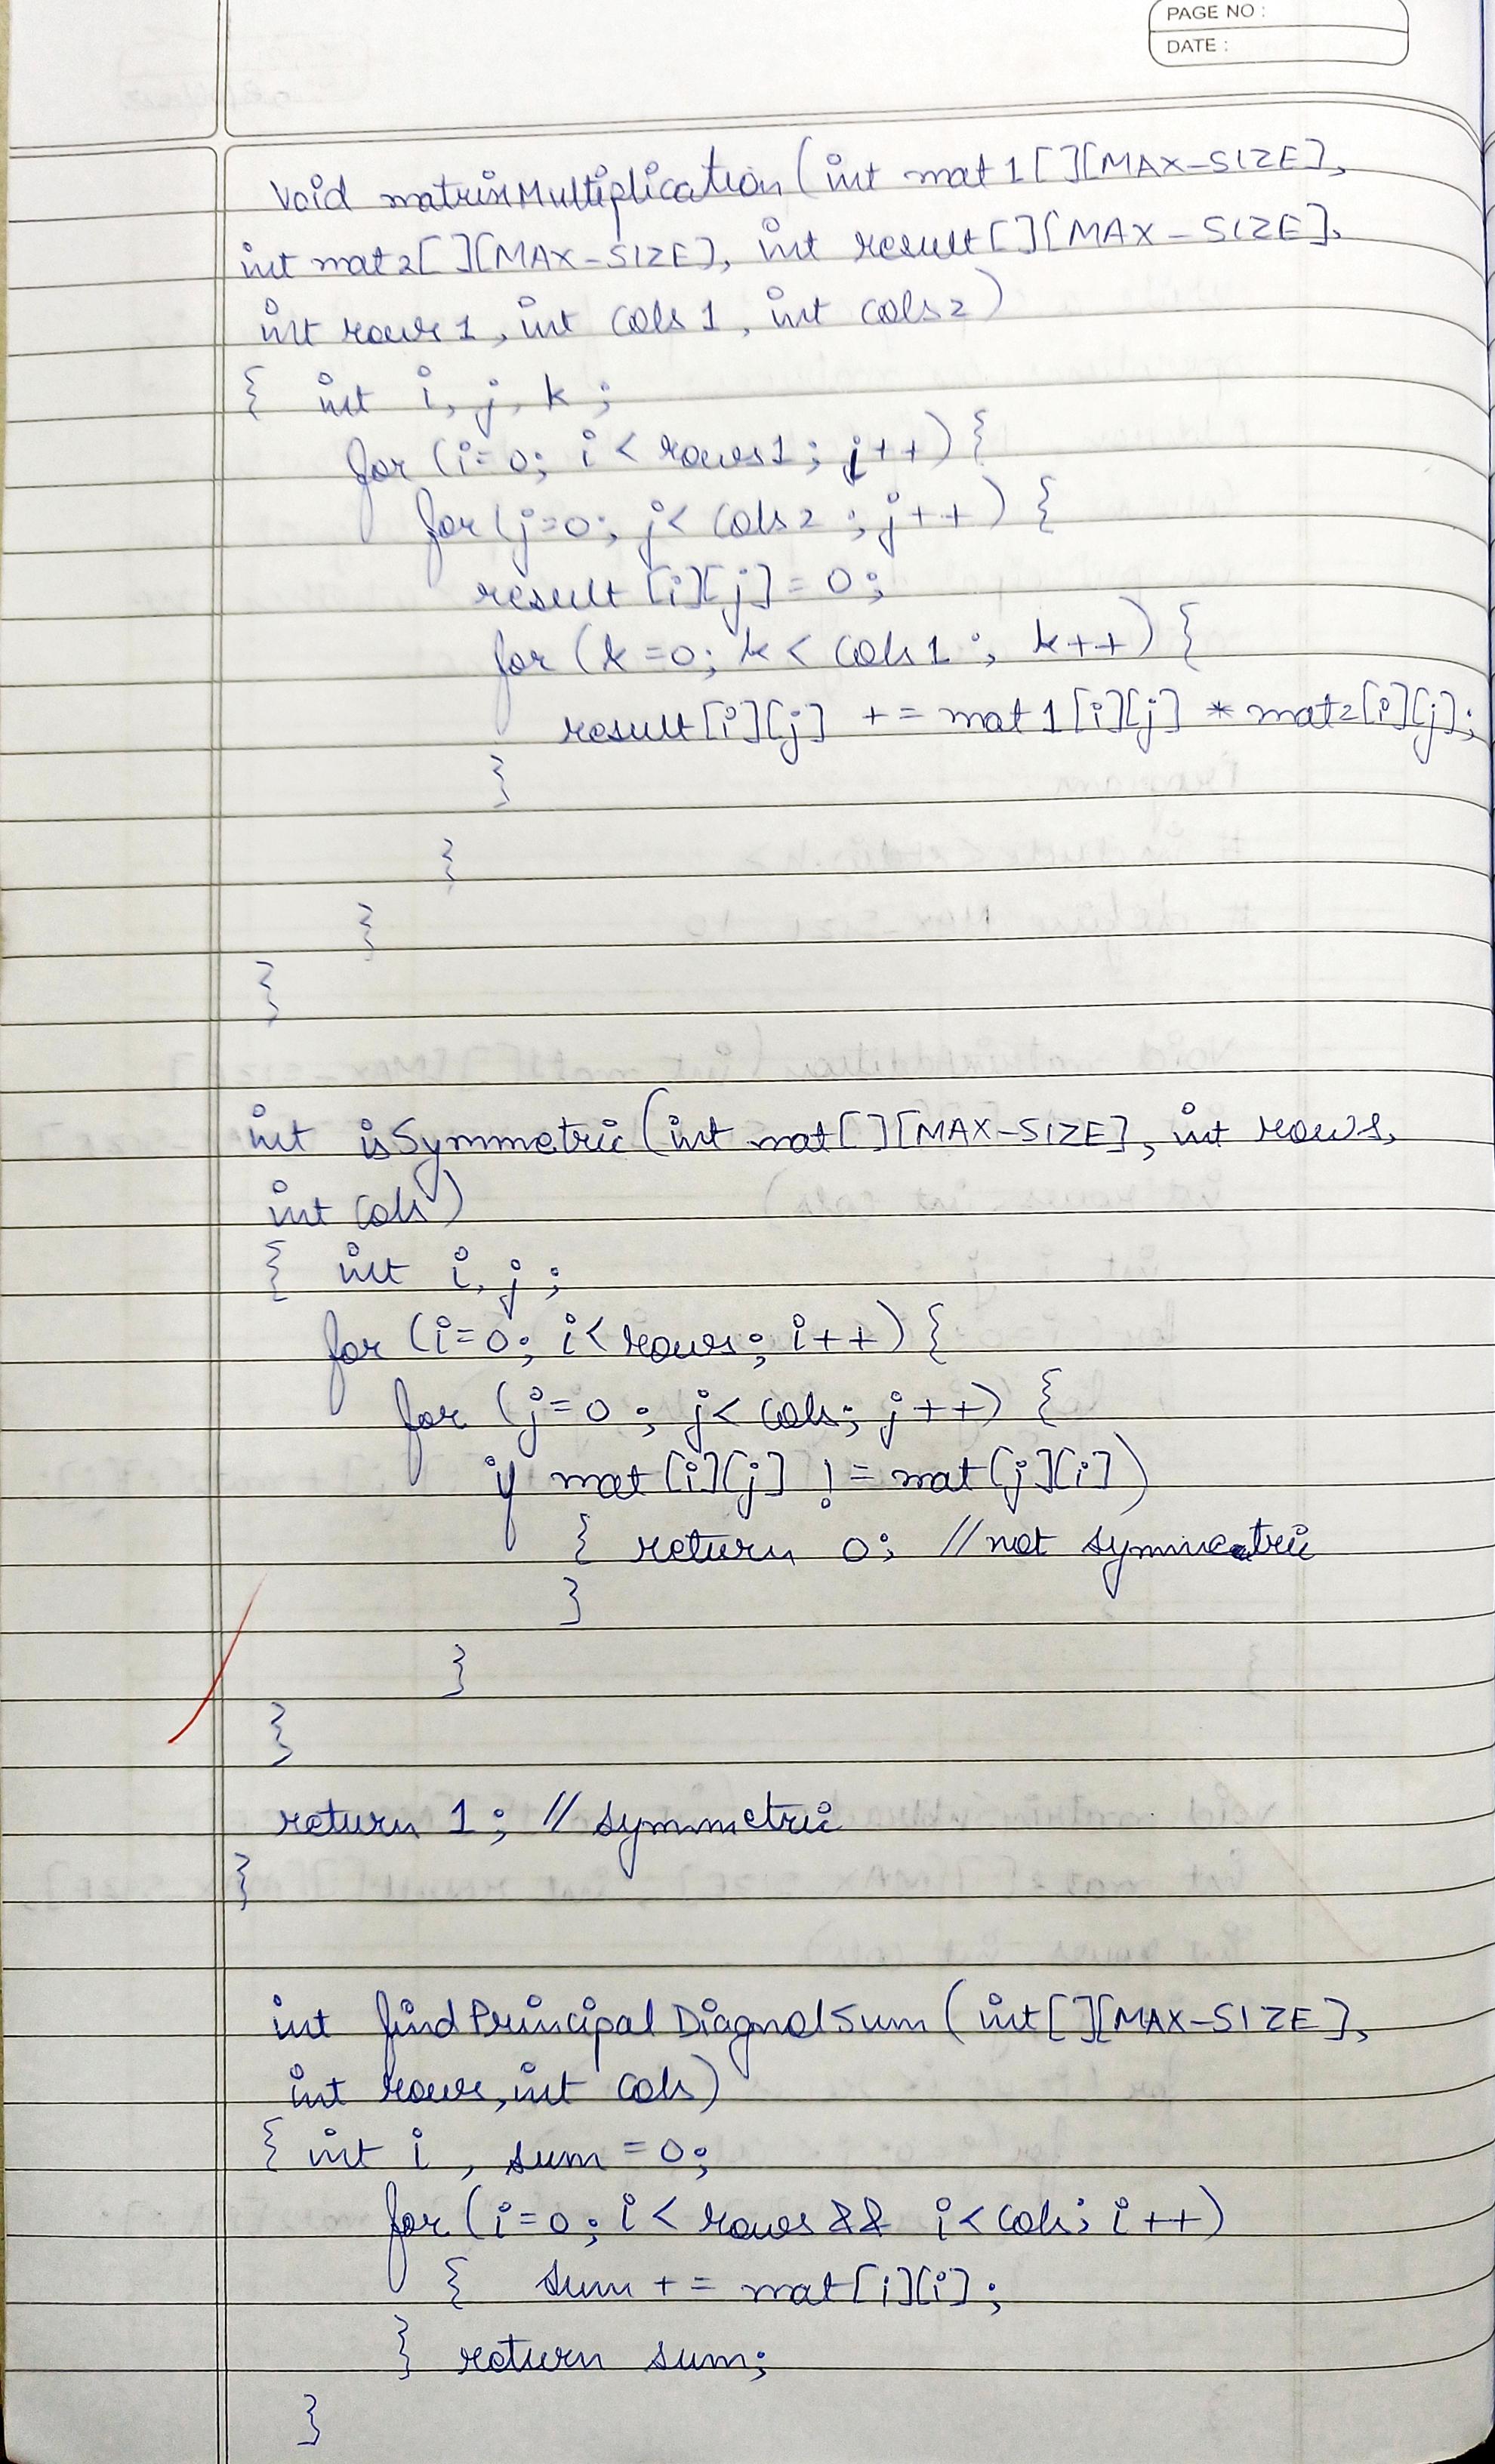 PAGE NO :
DATE :
Void matrixMultiplication (int mat1[][MAX-SIZE],
int mat2[][MAX-SIZE], int result[][MAX-SIZE],
int rows1, int cols1, int cols2)
{ int i, j, k ;
for (i=0; i < rows1; i++) {
for (j=0; j< cols2 ; j++) {
result [i][j] = 0;
for (k=0; k < cols1 ; k++) {
result[i][j] += mat1[i][j] * mat2[i][j];
}
}
}
}
int isSymmetric (int mat[][MAX-SIZE], int rows,
int cols)
{ int i, j ;
for (i=0; i<rows; i++) {
for (j=0 ; j< cols; j++) {
if mat[i][j] != mat[j][i])
{ return 0; //not symmetric
}
}
}
return 1; // symmetric
}
int findPrincipalDiagnolSum (int[][MAX-SIZE],
int rows, int cols)
{ int i , sum = 0;
for (i=0; i < rows && i < cols; i++)
{ sum += mat[i][i];
} return sum;
}